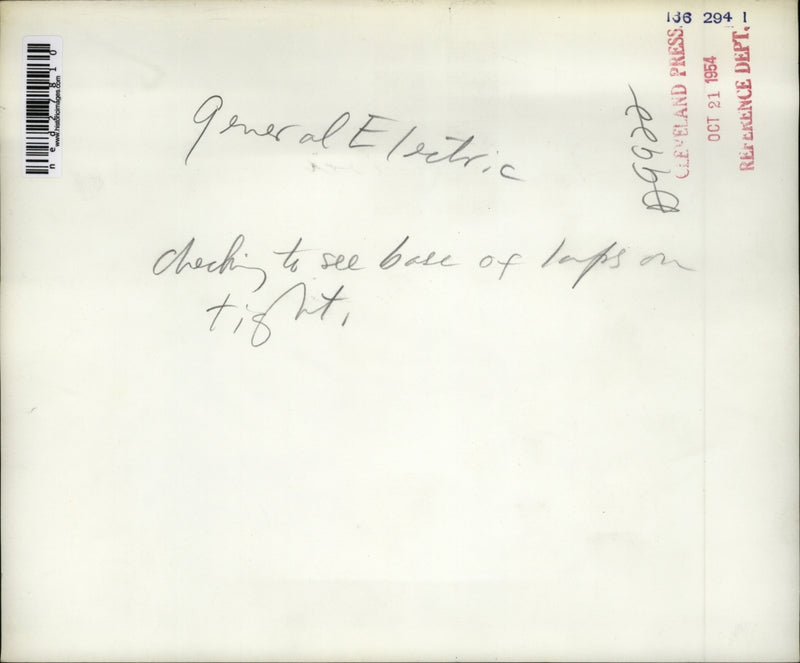 136 294 1
CLEVELAND PRESS.
OCT 21 1954
REFERENCE DEPT.
D9922
ned27810
www.historicimages.com
General Electric
checking to see base of lamps on
tight.